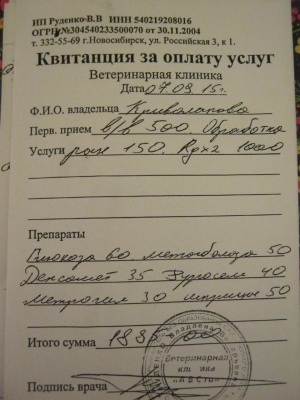 ИП Руденко-В.В ИНН 540219208016
ОГРН №304540233500070 от 30.11.2004
т. 332-55-69 г.Новосибирск, ул. Российская 3, к 1.
Квитанция за оплату услуг
Ветеринарная клиника
Дата 09.09.15г.
Ф.И.О. владельца Криволапова
Перв. прием в/в 500. Обработка
Услуги ран 150. Rgx2 1000
Препараты
Глюкоза 60 метоболаза 50
Дексамет 35 Фуросем 40
Метрогил 30 шприцы 50
Итого сумма
Ветеринарная
Подпись врача